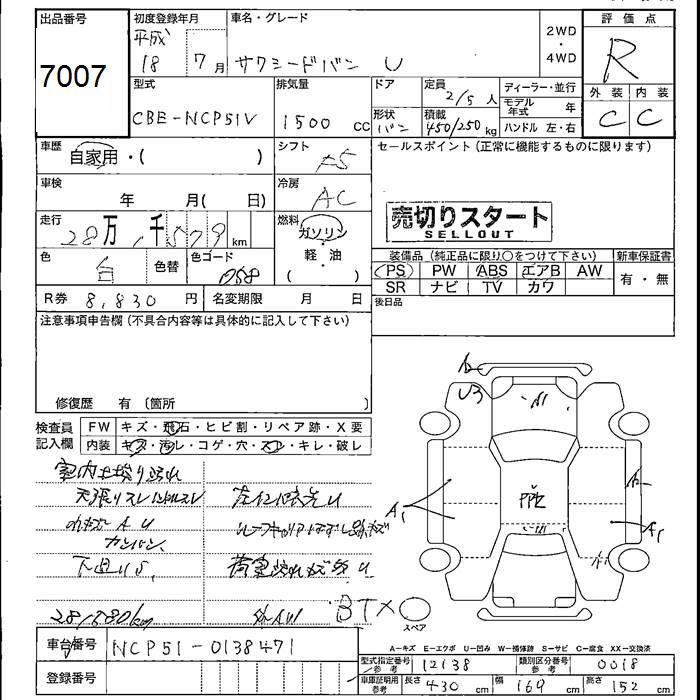 出品番号
7007
初度登録年月
平成
18 7月
車名・グレード
サクシードバン U
2WD
・
4WD
評価点
R
外装 内装
C C
型式
CBE-NCP51V
排気量
1500 cc
ドア
形状
バン
定員
2/5人
積載
450/250kg
ディーラー・並行
モデル年式 年
ハンドル 左・右
車歴
自家用・( )
シフト
セールスポイント(正常に機能するものに限ります)
車検
年 月( 日)
冷房
AC
売切りスタート
SELLOUT
走行
28万 千579km
燃料
ガソリン
・
軽油
( )
色
白
色替
色コード
058
装備品(純正品に限り○をつけて下さい)
新車保証書
PS PW ABS エアB AW
SR ナビ TV カワ
有・無
R券 8,830円
名変期限 月 日
後日品
注意事項申告欄(不具合内容等は具体的に記入して下さい)
修復歴 有 〔箇所 〕
検査員
記入欄
FW キズ・飛石・ヒビ割・リペア跡・X要
内装 キズ・汚レ・コゲ・穴・スレ・キレ・破レ
室内土埃り汚れ
カンバン、
下回りS、
荷室汚れキズ有U
外AW
A
U3
A1
A1
A1
BTX
スペア
車台番号 NCP51-0138471
登録番号
A-キズ E-エクボ U-凹み W-補修跡 S-サビ C-腐食 XX-交換済
型式指定番号
参考
12138
類別区分番号
参考
0018
車庫証明用
参考
長さ 430cm
幅 169cm
高さ 152cm